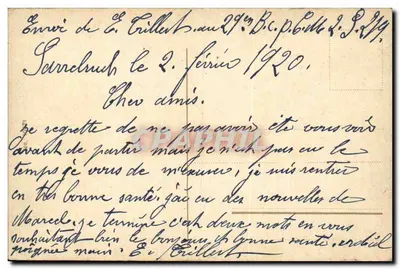 Envoi de E. Trillert au 29em B.c.p. C.M.2. S.P. 219
Sarrebruch le 2. février 1920.
Cher amis.
je regrette de ne pas avoir été vous voir
avant de partir mais je n'ait pas eu le
temps je vous de m'excuser, je suis rentrer
en très bonne santé, j'ai eu des nouvelles de
Marcel. je termine c'est deux mots en vous
souhaitant bien le bonjours et bonne santé. cordial
poignée main. E. Trillert